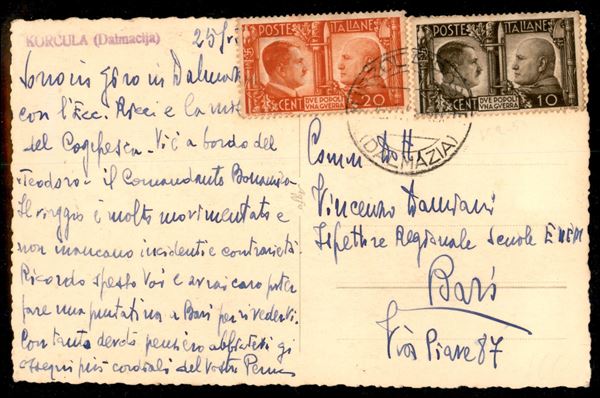 KORCULA (Dalmacija)
25
Sono in giro in Dalmat
con l'Ecc. Ricci e la
del Cogepesca. Vi è a bordo del
"Teodoro" il Comandante
Il viaggio è molto movimentato e
non mancano incidenti e contrarietà.
Ricordo spesso Voi e avrei caro poter
fare una puntatina a Bari per rivedervi.
Con tanto devoto pensiero abbiatevi gli
ossequi più cordiali del vostro
POSTE ITALIANE
CENT DVE POPOLI VNA GVERRA 20
POSTE ITALIANE
CENT DVE POPOLI VNA GVERRA 10
(DALMAZIA)
Comm
Vincenzo Damiani
Ispettore Regionale Scuole ENEM
Bari
Via Piave 87